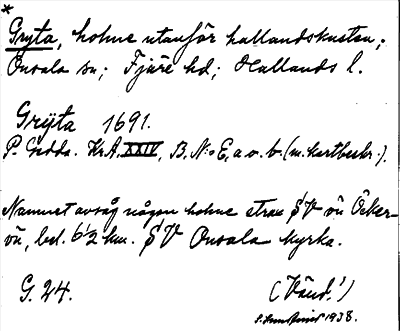 *
Gryta, holme utanför hallandskusten;
Onsala sn; Fjäre hd; Hallands l.
Grÿta 1691.
P. Gedda. Kr.A. XXIV, B. N:o E, a o. b. (m. kartbeskr.).
Namnet avsåg någon holme strax SV om Öcker-
ön, bel. 6 1/2 km. SV Onsala kyrka.
G. 24. (Vänd!)
1938.